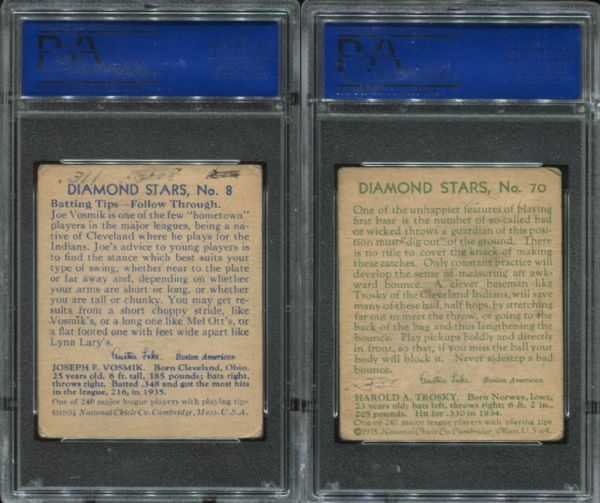 PSA
.311
DIAMOND STARS, No. 8
Batting Tips—Follow Through.
Joe Vosmik is one of the few "hometown"
players in the major leagues, being a na-
tive of Cleveland where he plays for the
Indians. Joe's advice to young players is
to find the stance which best suits your
type of swing, whether near to the plate
or far away and, depending on whether
your arms are short or long, or whether
you are tall or chunky. You may get re-
sults from a short choppy stride, like
Vosmik's, or a long one like Mel Ott's, or
a flat footed one with feet wide apart like
Lynn Lary's.
Austen Lake Boston American
JOSEPH F. VOSMIK. Born Cleveland, Ohio.
25 years old, 6 ft. tall, 185 pounds; bats right,
throws right. Batted .348 and got the most hits
in the league, 216, in 1935.
One of 240 major league players with playing tips
National Chicle Co. Cambridge, Mass. U.S.A.
PSA
DIAMOND STARS, No. 70
One of the unhappier features of playing
first base is the number of so-called bad
or wicked throws a guardian of this posi-
tion must "dig out" of the ground. There
is no rule to cover the knack of making
these catches. Only constant practice will
develop the sense of measuring an awk-
ward bounce. A clever baseman like
Trosky of the Cleveland Indians, will save
many of these bad, half hops, by stretching
far out to meet the throw, or going to the
back of the bag and thus lengthening the
bounce. Play pickups boldly and directly
in front, so that, if you miss the ball your
body will block it. Never sidestep a bad
bounce.
Austen Lake Boston American
HAROLD A. TROSKY. Born Norway, Iowa,
23 years old; bats left, throws right; 6 ft. 2 in.,
205 pounds. Hit for .330 in 1934.
One of 240 major league players with playing tips
©1935 National Chicle Co. Cambridge, Mass. U.S.A.